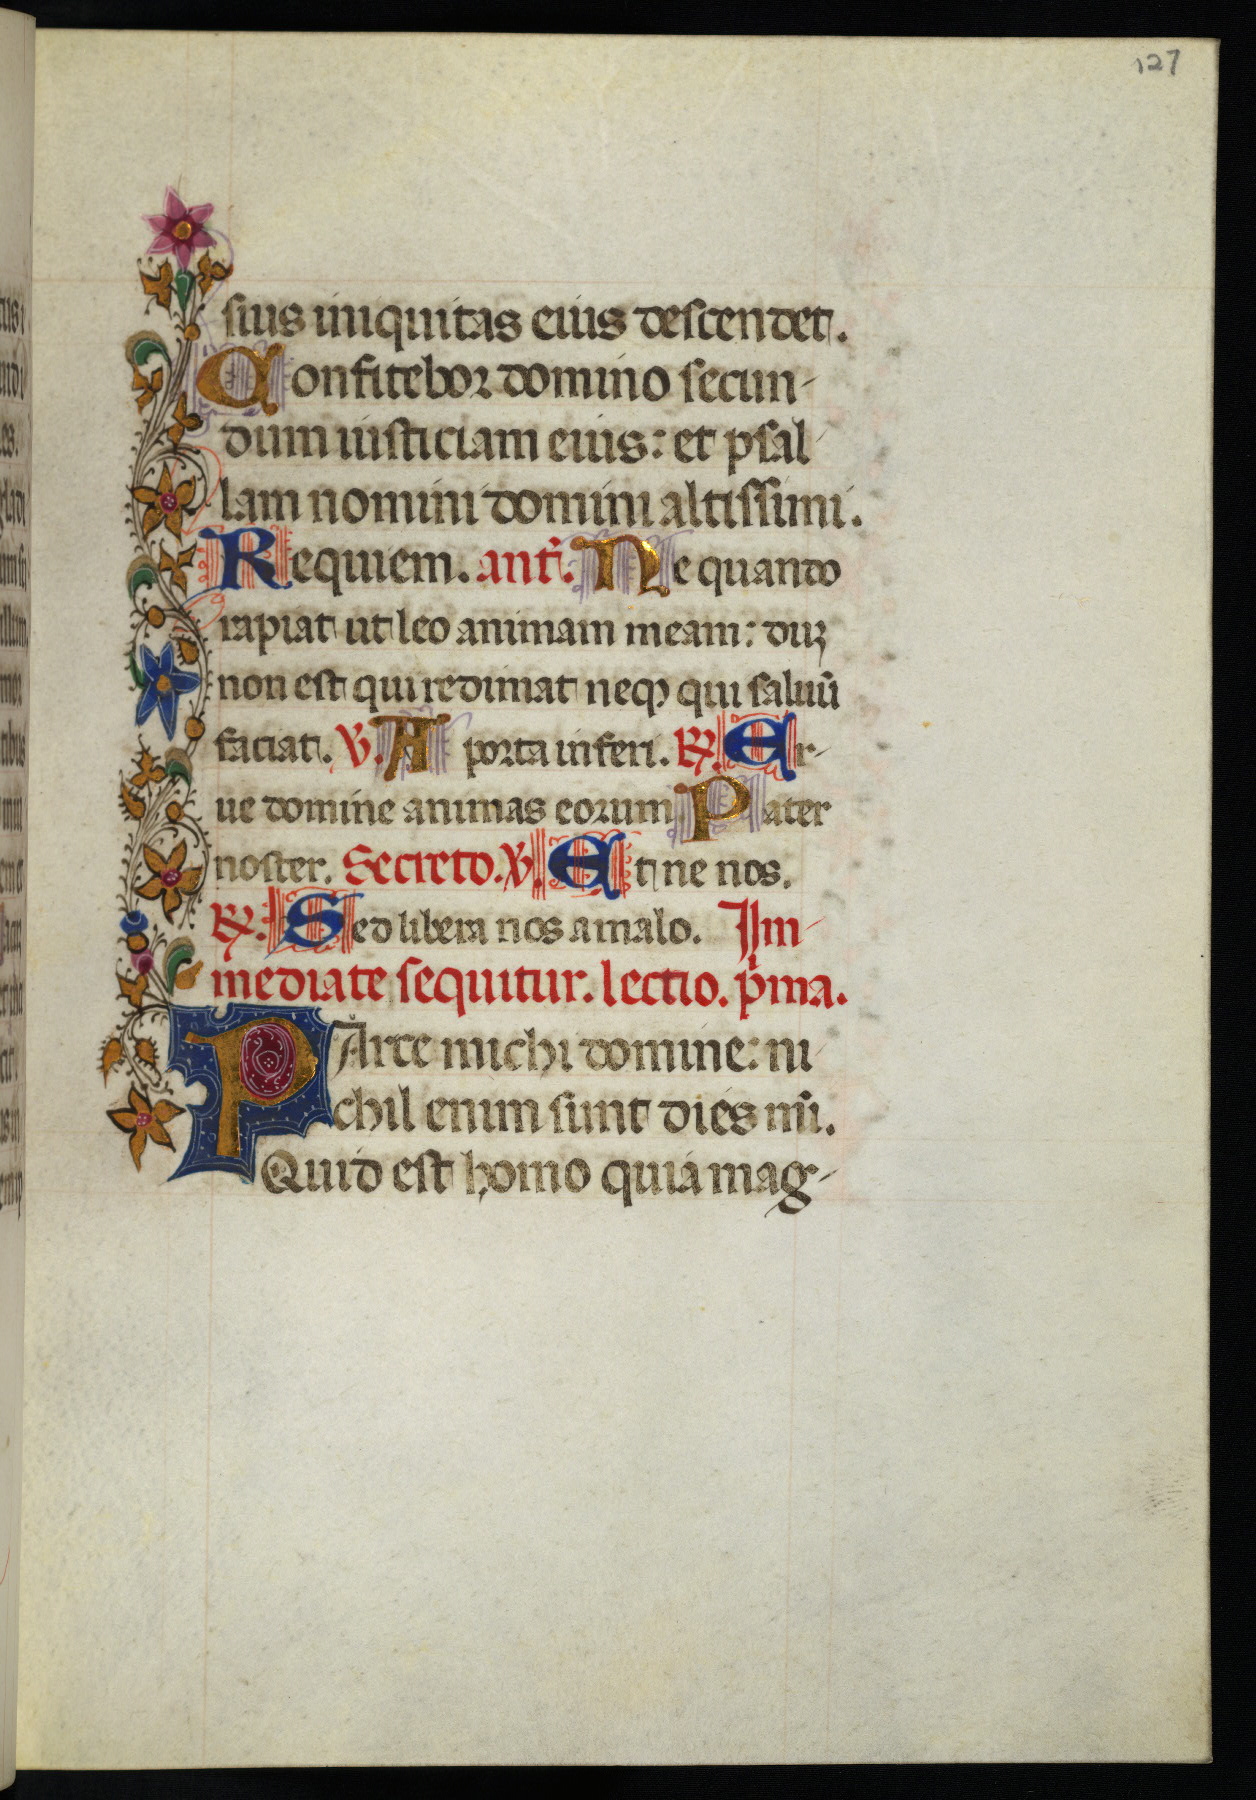 127
sius iniquitas eius descendet.
Confitebor domino secun-
dum iusticiam eius: et psal-
lam nomini domini altissimi.
Requiem. antͥ. Ne quando
rapiat ut leo animam meam: duꝫ
non est qui redimat neqꝫ qui saluū
faciat. ℣. A porta inferi. ℟. Er-
ue domine animas eorum. Pater
noster. Secreto. ℣. Et ne nos.
℟. Sed libera nos a malo. Im-
mediate sequitur. lectio. pͥma.
PArce michi domine: ni-
chil enim sunt dies mī.
Quid est homo quia mag-